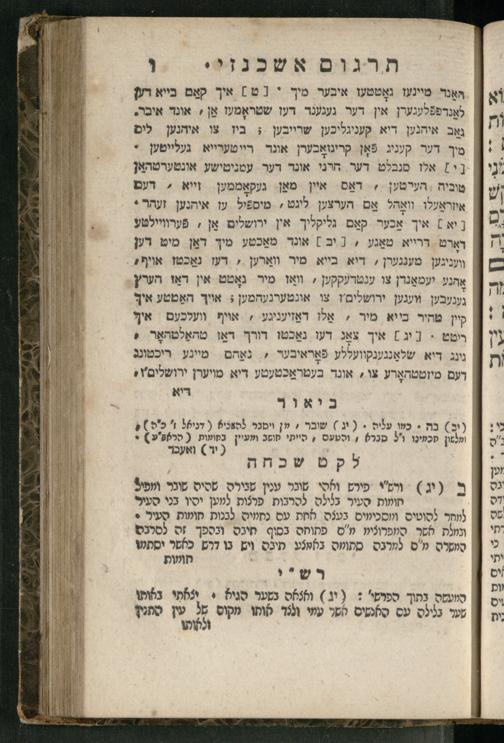 תרגום אשכנזי . ו
האנד מיינעז גאָטטעז איבער מיך . [ט] איך קאַם בייא דען
לאַנדפֿפֿלעגערן אין דער געגענד דעז שטראָמעז אָן , אונד איבר.
גאב איהנען דיא קעניגליכען שרייבען ; ביז צו איהנען ליס
מיך דער קעניג פֿאָן קריגזאָבערן אונד רייטערייא געלייטען .
[י] אלז סנבלט דער חרני אונד דער עמניטישע אונטערטהאַן
טוביה הערטען , דאס איין מאַן געקאָממען זייא , דעם
איזראעלז וואָהל אַם הערצען ליגט , מיספֿיל עז איהנען זעהר.
[יא] איך אבער קאַם גליקליך אין ירושלים אן , פֿערוויילטע
דאָרט דרייא טאַגע , [יב] אונד מאַכטע מיך דאַן מיט דען
וועניגען מענגערן , דיא בייא מיר וואַרען , דעז נאַכטז אויף,
אָהנע יעמאַנדן צו ענטדעקקען , וואָז מיר גאָטט אין דאז הערץ
געגעבען וועגען ירושלים'ז צו אונטערנעהמען ; אויך האַטטע איך
קיין טהיר בייא מיר , אַלז דאזיעניגע , אויף וועלכעם איך
ריטט . [יג] איך צאָג דעז נאַכטז דורך דאז טהאַלטהאָר ,
גינג דיא שלאַנגענקוועללע פֿאָראיבער , נאַהם מיינע ריכטונג
דעם מיזטטהאָרע צו , אונד בעטראַכטעטע דיא מויערן ירושלים'ז,
דיא
ביאור
(יב) בה . כמו עליה . (יג) שובר , מן ויסבר להשניא (דניאל ז' כ"ה),
ובלשון חכמינו ז"ל סברא , והטעם , הייתי חושב ומעיין בחומות (הראפ"ע) .
(יד) ואעבד
לקט שכחה
ב (יג) ורש"י פירש ואהי שובר ענין שבירה שהיה שובר ומפיל
חומות העיר בלילה להרבות פרצות למען יהיו בני העיר
למחר להוטים ומסכימים בעצה אחת עם נחמיה לבנות חומות העיר .
ובמלת אשר המפרוצים מ"ם פתוחה בסוף תיבה ובהפך זה לסרבה
המשרה מ"ם למרבה סתומה באמצע תיבה ויש בו דרש כאשר יסתמו
חומות
רש"י
המעשה בתוך הפרשי' : (יג) ואצאה בשער הגיא . יצאתי באותו
שער בלילה עם האנשים אשר עמי ולצד אותו מקום של עין התנין
ולאותו